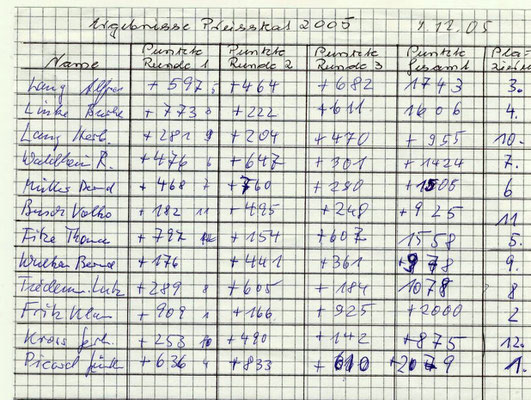 Ergebnisse Preisskat 2005 9.12.05
Name Punkte Runde 1 Punkte Runde 2 Punkte Runde 3 Punkte Gesamt Pla-
Lang +597 5 +464 +682 1743 3.
Linke +773 +222 +611 1606 4.
Lang Herb. +281 9 +204 +470 +955 10.
Waldhein R. +476 6 +647 +301 +1424 7.
Müller Bernd +468 7 +760 +280 +1505 6
+182 11 +495 +248 +925 11
Thomas +797 +154 +607 1558 5.
Bernd +176 +441 +361 +978 9.
Lutz +289 8 +605 +184 1078 8
Fritz Klaus +909 1 +166 +925 +2000 2
+253 10 +480 +142 +875 12.
Picard +636 4 +833 +610 +2079 1.